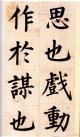 思也戲動
作於謀也